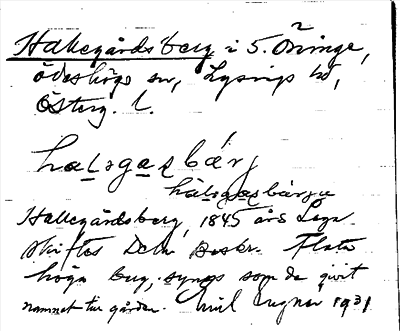 Hallegårdsberg i S. Öninge,
Ödeshögs sn, Lysings hd,
Österg. l.
halsgasbärj
hälsgasbärju
Hallegårdsberg, 1845 års Laga
skiftes Dem beskr. Flata
höga berg, synes som de givit
namnet till gården. Emil 1931